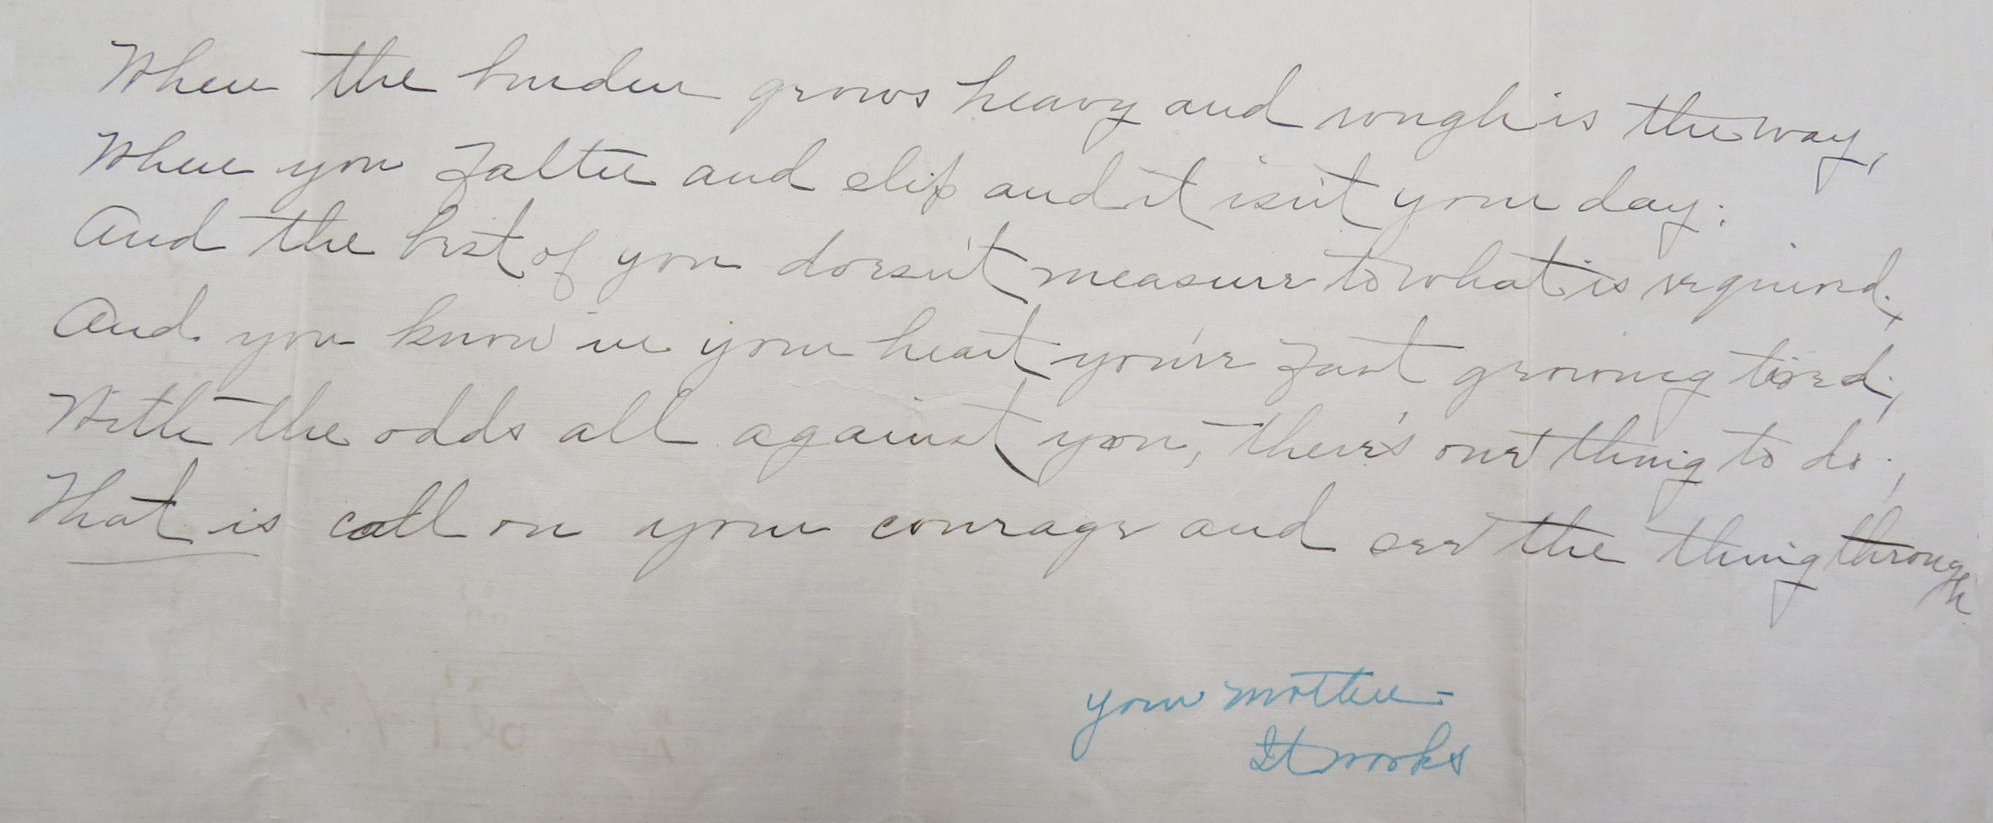 When the burden grows heavy and rough is the way,
When you falter and slip and it isn't your day;
And the best of you doesn't measure to what is required,
And you know in your heart you're fast growing tired;
With the odds all against you, there's one thing to do;
That is call on your courage and see the thing through
your mother-
It works